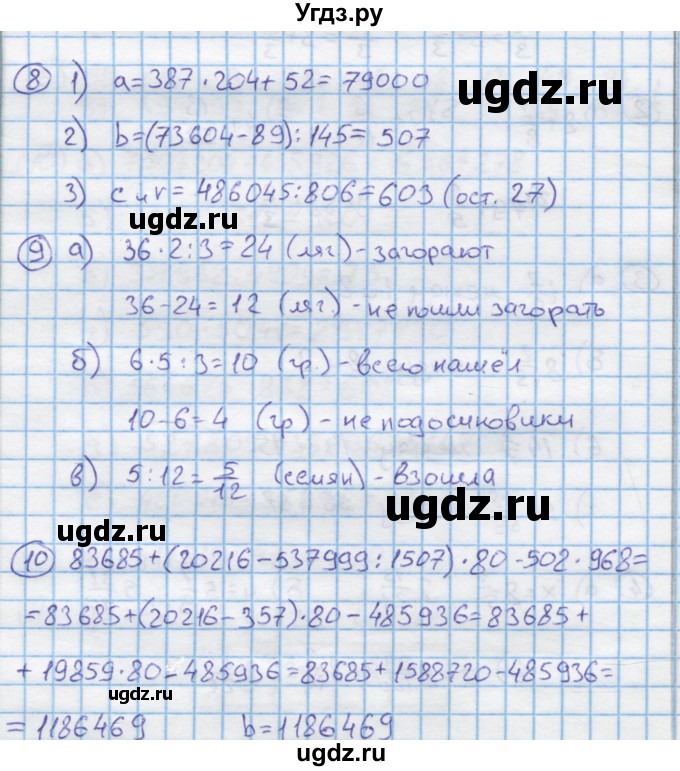 Угдз.ру
8 1) a=387·204+52=79000
ugdz.ru
2) b=(73604-89):145=507
3) c и r=486045:806=603 (ост. 27)
ugdz.ru
9 а) 36·2:3=24 (ляг) - загорают
36-24=12 (ляг.) - не пошли загорать
б) 6·5:3=10 (гр.) - всего нашёл
10-6=4 (гр) - не подосиновики
в) 5:12=5/12 (семян) - взошла
ugdz.ru
ugdz.ru
10 83685+(20216-537999:1507)·80-502·968=
=83685+(20216-357)·80-485936=83685+
+19859·80-485936=83685+1588720-485936=
ugdz.ru
=1186469 b=1186469
ugdz.ru